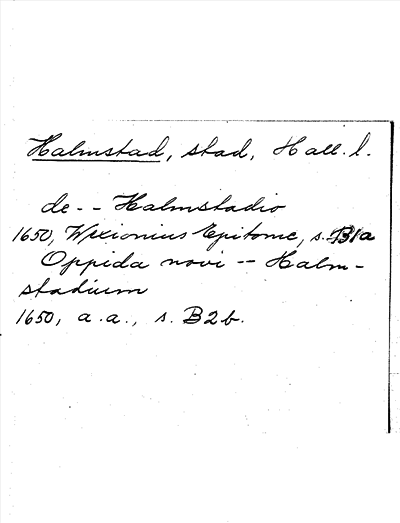 Halmstad, stad, Hall. l.
de -- Halmstadio
1650, Wexionius Epitome, s. B1a
Oppida novi -- Halm-
stadium
1650, a.a., s. B2b.